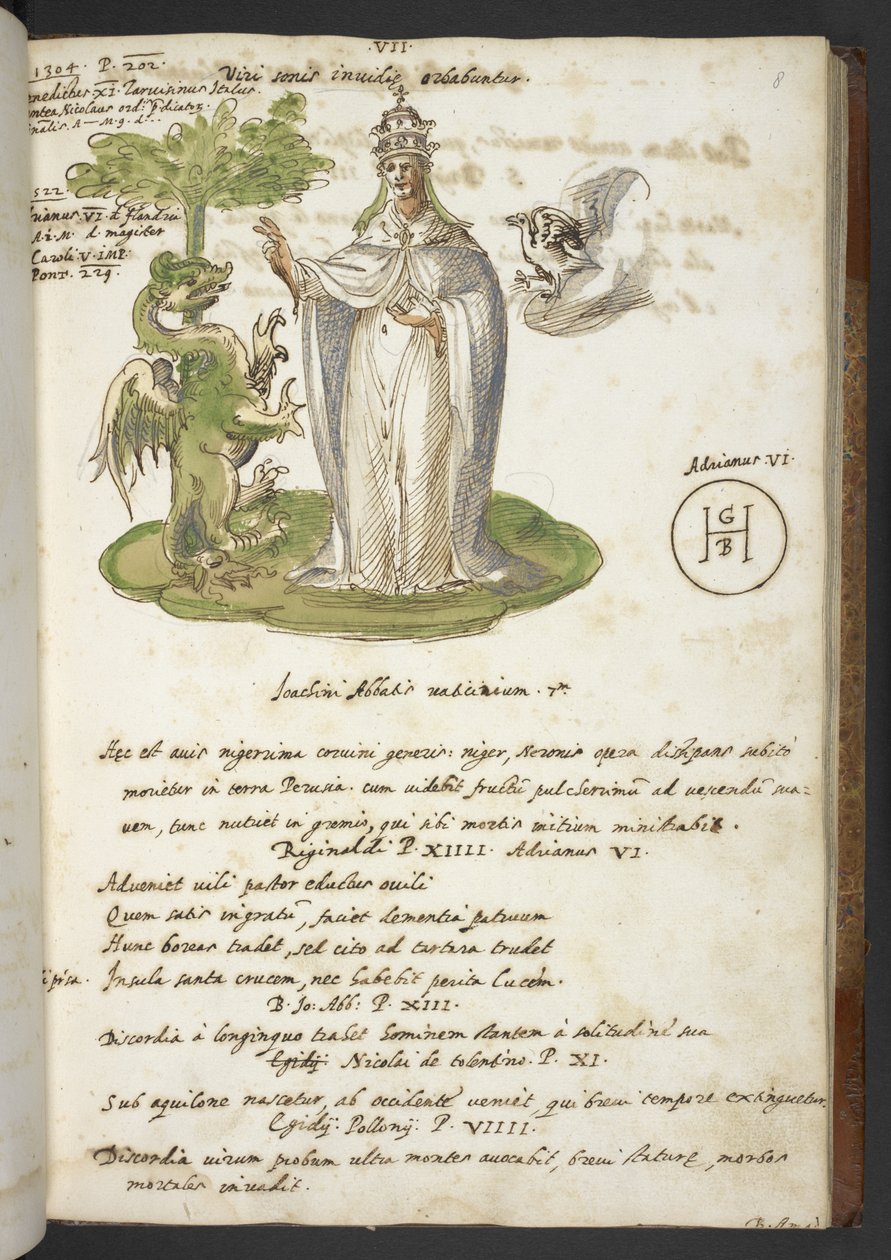 .VII.
8
1304. P. 202.
Viri sonis invidię orbabuntur.
enedictus XI. Tarvisinus Italus.
antea Nicolaus ord: Pdicator.
inalis. A — M. 9. d...
522.
rianus. VI. d Flandria
A. i. M. d. magister
Caroli V. IMP.
Pont. 229.
Adrianus .VI.
G
H
B
Joachini Abbatis vaticinium. 7m
Hęc est avis nigerrima corvini generis: niger, Neronis opera dissipans subitò
morietur in terra Perusia. cum videbit fructū pulcherimū ad vescendū sua=
vem, tunc nutriet in gremio, qui sibi mortis initium ministrabit.
Riginaldi P. XIIII. Adrianus VI.
Adveniet vili pastor eductus ovili
Quem satis ingratū, faciet dementia patruum
Hunc boreas tradet, sed cito ad tartara trudet
i prsa. Insula santa crucem, nec habebit perita lucem.
B. Jo: Abb: P. XIII.
Discordia à longinquo trahet hominem stantem à solitudine sua
Egidij Nicolai de tolentino. P. XI.
Sub aquilone nascetur, ab occidente veniet, qui brevi tempore extinguetur.
Egidij: Pollonij: P. VIIII.
Discordia virum probum ultra montes avocabit, brevi staturę, morbos
mortales invadit.